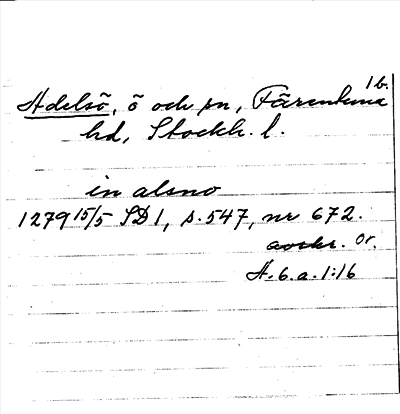 16.
Adelsö, ö och sn, Färentuna
hd, Stockh. l.
in alsno
1279 15/5 SD 1, s. 547, nr 672.
avskr. Or.
H. 6. a. 1:16